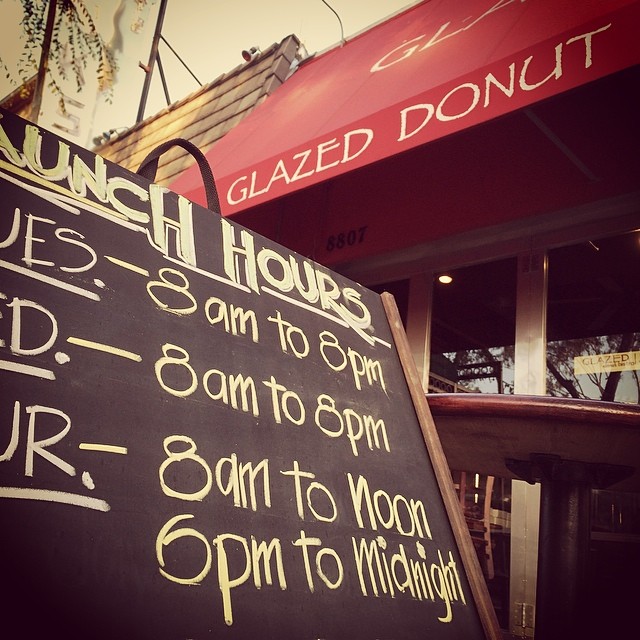 GLA
GLAZED DONUT
8807
AUNCH HOURS
UES. - 8am to 8pm
ED. - 8am to 8pm
UR. - 8am to Noon
6pm to Midnight
GLAZED